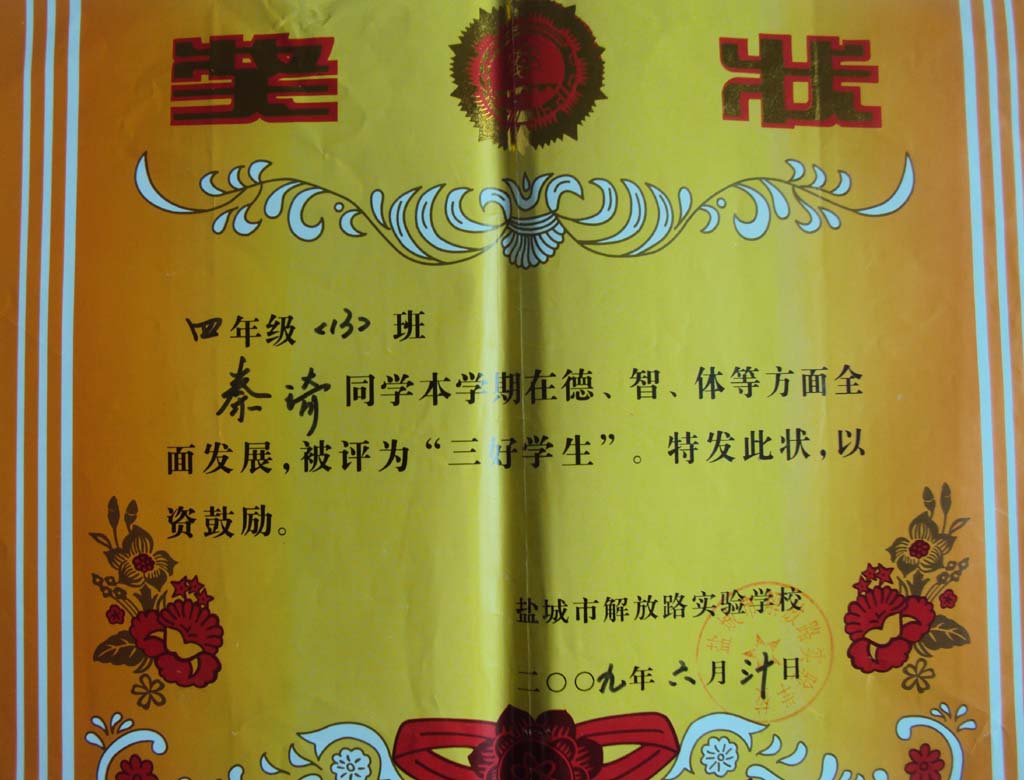 奖状
四年级〈13〉班
秦谤同学本学期在德、智、体等方面全
面发展，被评为“三好学生”。特发此状，以
资鼓励。
盐城市解放路实验学校
二〇〇九年六月廿日